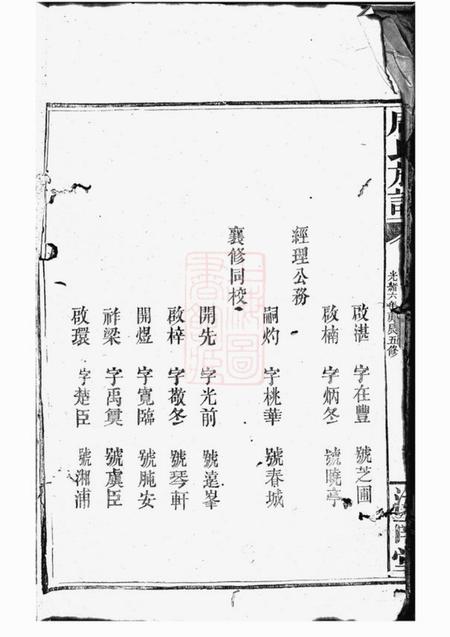 周氏族譜
光緒六年庚辰五修
啟湛 字在豐 號芝圃
啟楠 字炳冬 號曉亭
經理公務
嗣灼 字桃華 號春城
襄修同校
開先 字光前 號達峯
啟梓 字敬冬 號琴軒
開煜 字寬臨 號施安
祥梁 字禹奠 號虞臣
啟環 字楚臣 號湘浦